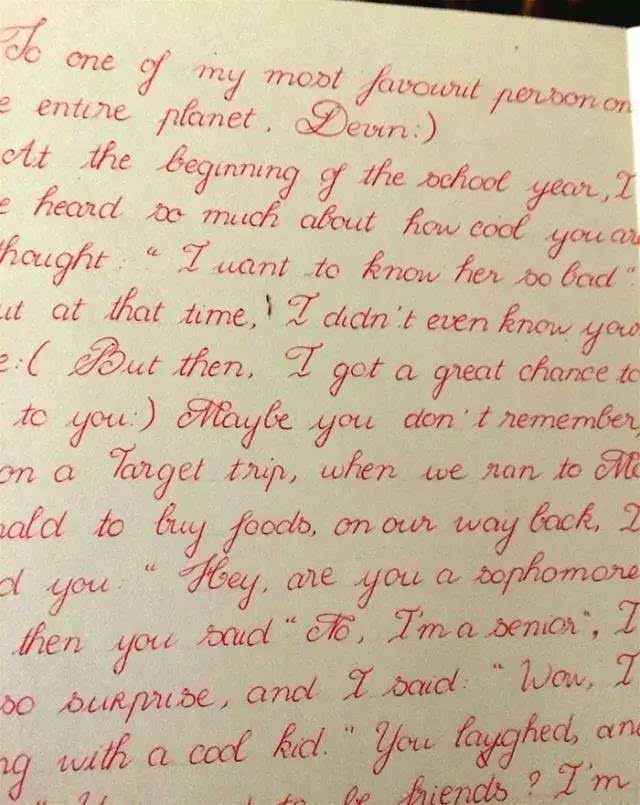 To one of my most favourit person on
e entire planet, Devin:)
At the beginning of the school year, I
e heard so much about how cool you are
hought: " I want to know her so bad"
ut at that time, I didn't even know you
e:( But then, I got a great chance to
to you:) Maybe you don't remember,
on a Target trip, when we ran to Mc
nald to buy foods, on our way back, I
d you: " Hey, are you a sophomore
then you said " No, I'm a senior", I
so surprise, and I said: " Wow, I
ng with a cool kid." You layghed, and
to be friends? I'm